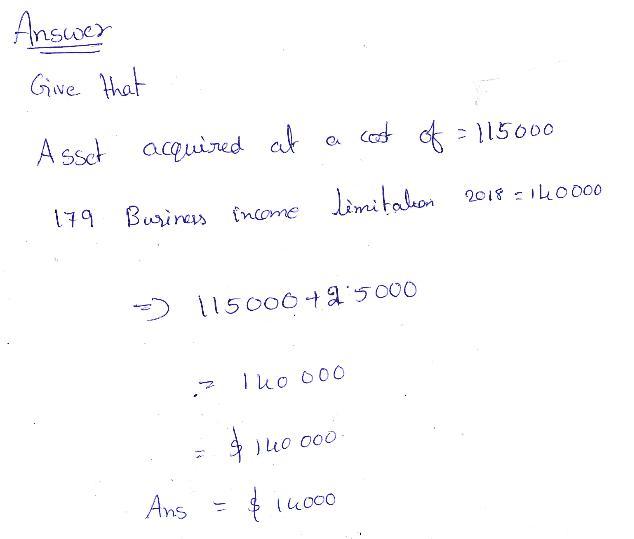 Answer
Give that
Asset acquired at a cost of = 115000
179 Business income limitation 2018 = 140000
=> 115000 + 25000
= 140 000
= $ 140 000.
Ans = $ 14000